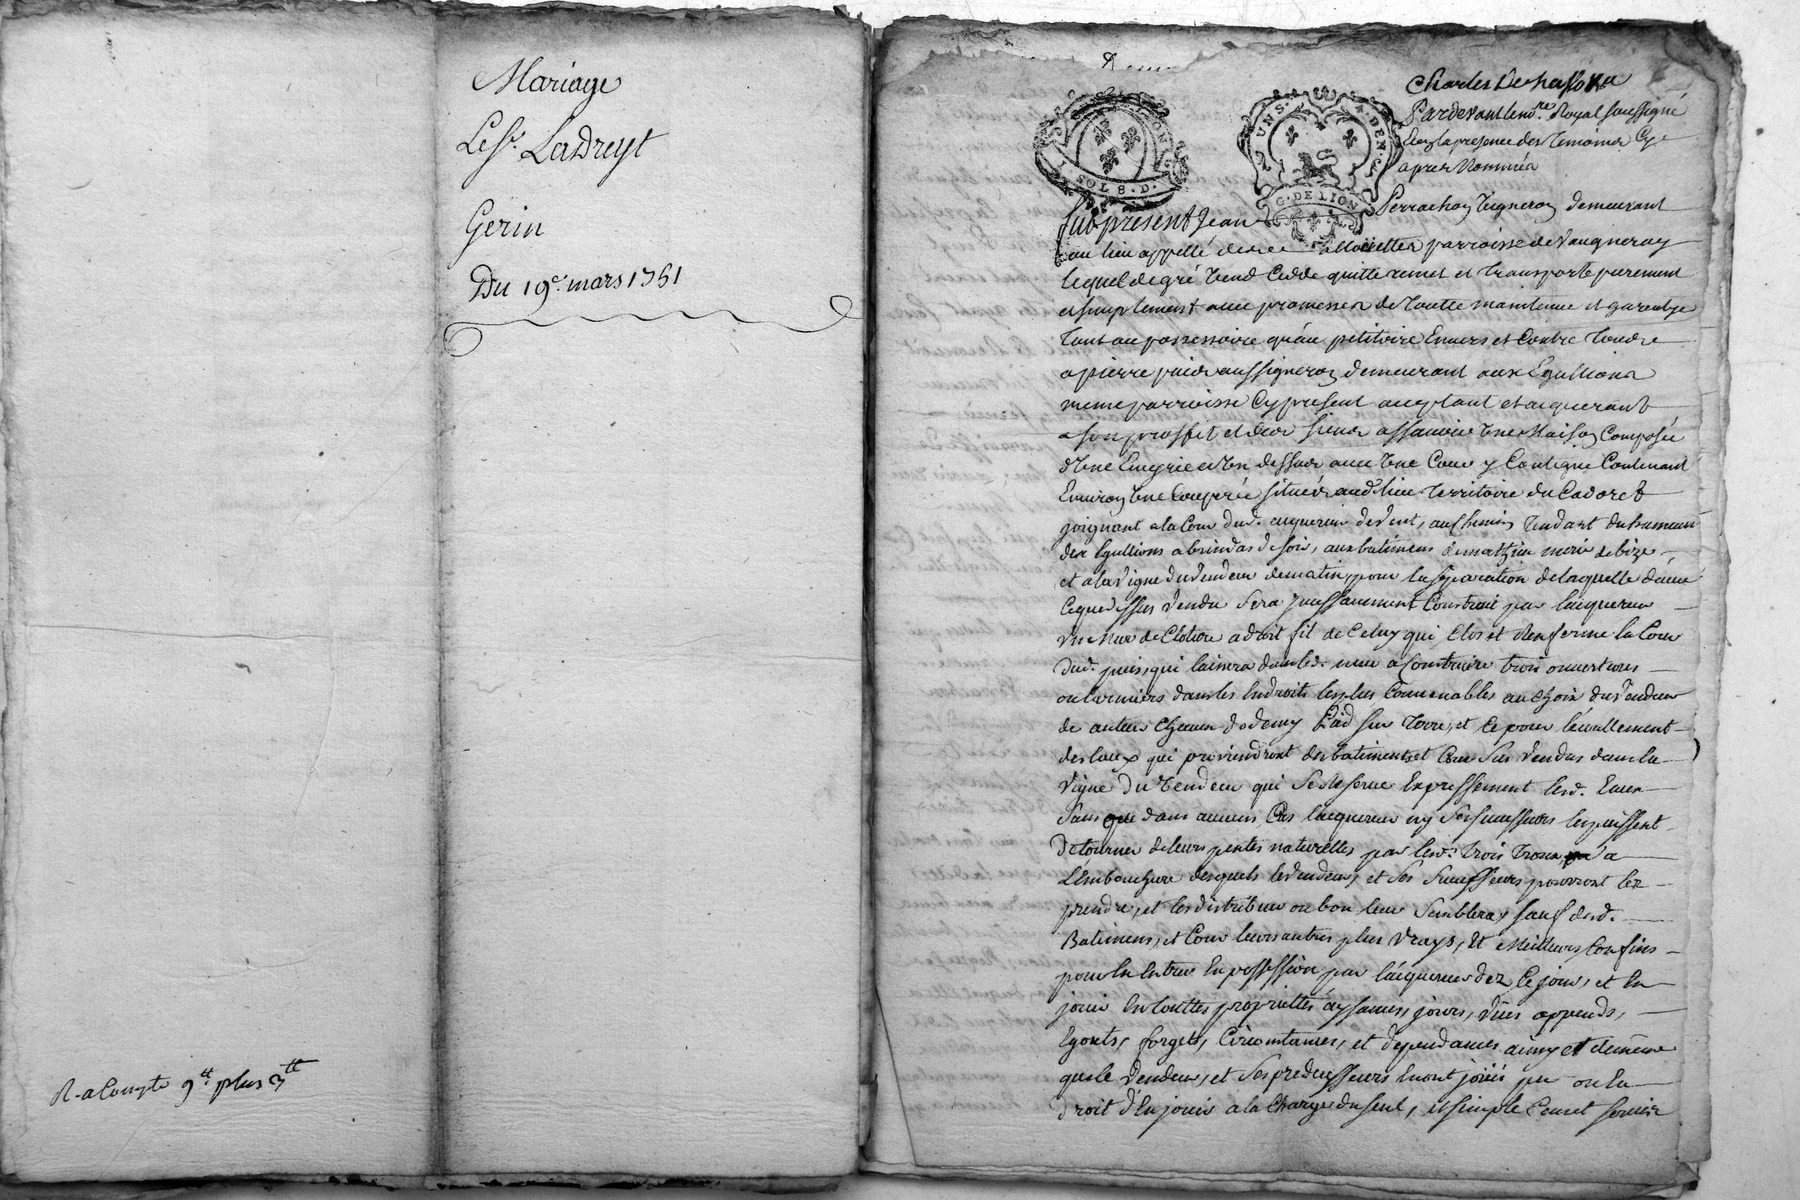 Mariage
Le Sr. Ladreyt
Gerin
Du 19e. mars 1751
R. a Compte 9lt. plus 3tt
Charles De
Pardevant le no.re Royal soussigné
En la presence des Temoins Cy
apres Nommés
SOLS. D.
G. DE LION
fut present Jean Perrachon Vigneron demeurant
au lieu appellé des alloüettes parroisse de Vaugneray
lequel de gré Vend Cedde quitte remet et transporte purement
et simplement avec promesses de toutte maintenue et garentye
tant au possessoire qu'au petitoire Envers et Contre toutes
a pierre puis aussy Vigneron demeurant aux Egullions
meme parroisse Cy present acceptant et acquerant
a son proffit et des siens assavoir Une Maison Composée
d'Une Ecuyrie et Un dessus avec Une Cour y Contigue Contenant
Environ Une Couppée située aud. lieu territoire du Cadoret
joignant a la Cour dud. acquereur de Vent, au chemin Tendant du hameau
des Egullions a brindas de soir, aux batimens de mathieu de bize
et a la Vigne du Vendeur de matin, pour la separation de laquelle d'avec
Ce que dessus Vendu sera incessamment Construit par l'acquereur
Un Mur de Cloture a droit fil de Celuy qui Clos et Renferme la Cour
dud. puis, qui laissera dans led. mur a Construire trois ouvertures
ou larmiers dans les Endroits les plus Convenables au choix du Vendeur
de auteur Chacun d'un demy pied sur Terre, et Ce pour l'ecoullement
des Eaux qui proviendront des batiments et Cour sus Vendus dans la
Vigne du Vendeur qui se Reserve Expressement lesd. Eaux
sans que dans aucuns Cas l'acquereur ny ses successeurs les puissent
detourner de leurs pentes naturelles par lesd. trois trous a
L'Embouchure desquels le Vendeur, et ses successeurs pourront les
prendre, et les distribuer ou bon leur semblera, sauf desd.
Batimens, et Cour leurs autres plus Vrays, Et Meilleurs Confins
pour En Entrer En possession par l'acquereur dez Ce jour, et En
jouir En touttes proprietés aysances, jours, Vües appends,
Egouts, forgets, Circonstances, et dependances ainsy et de même
que le Vendeur, et ses predecesseurs En ont joüis pu ou En
droit d'En jouir a la Charge du seul, et simple Cens et servis